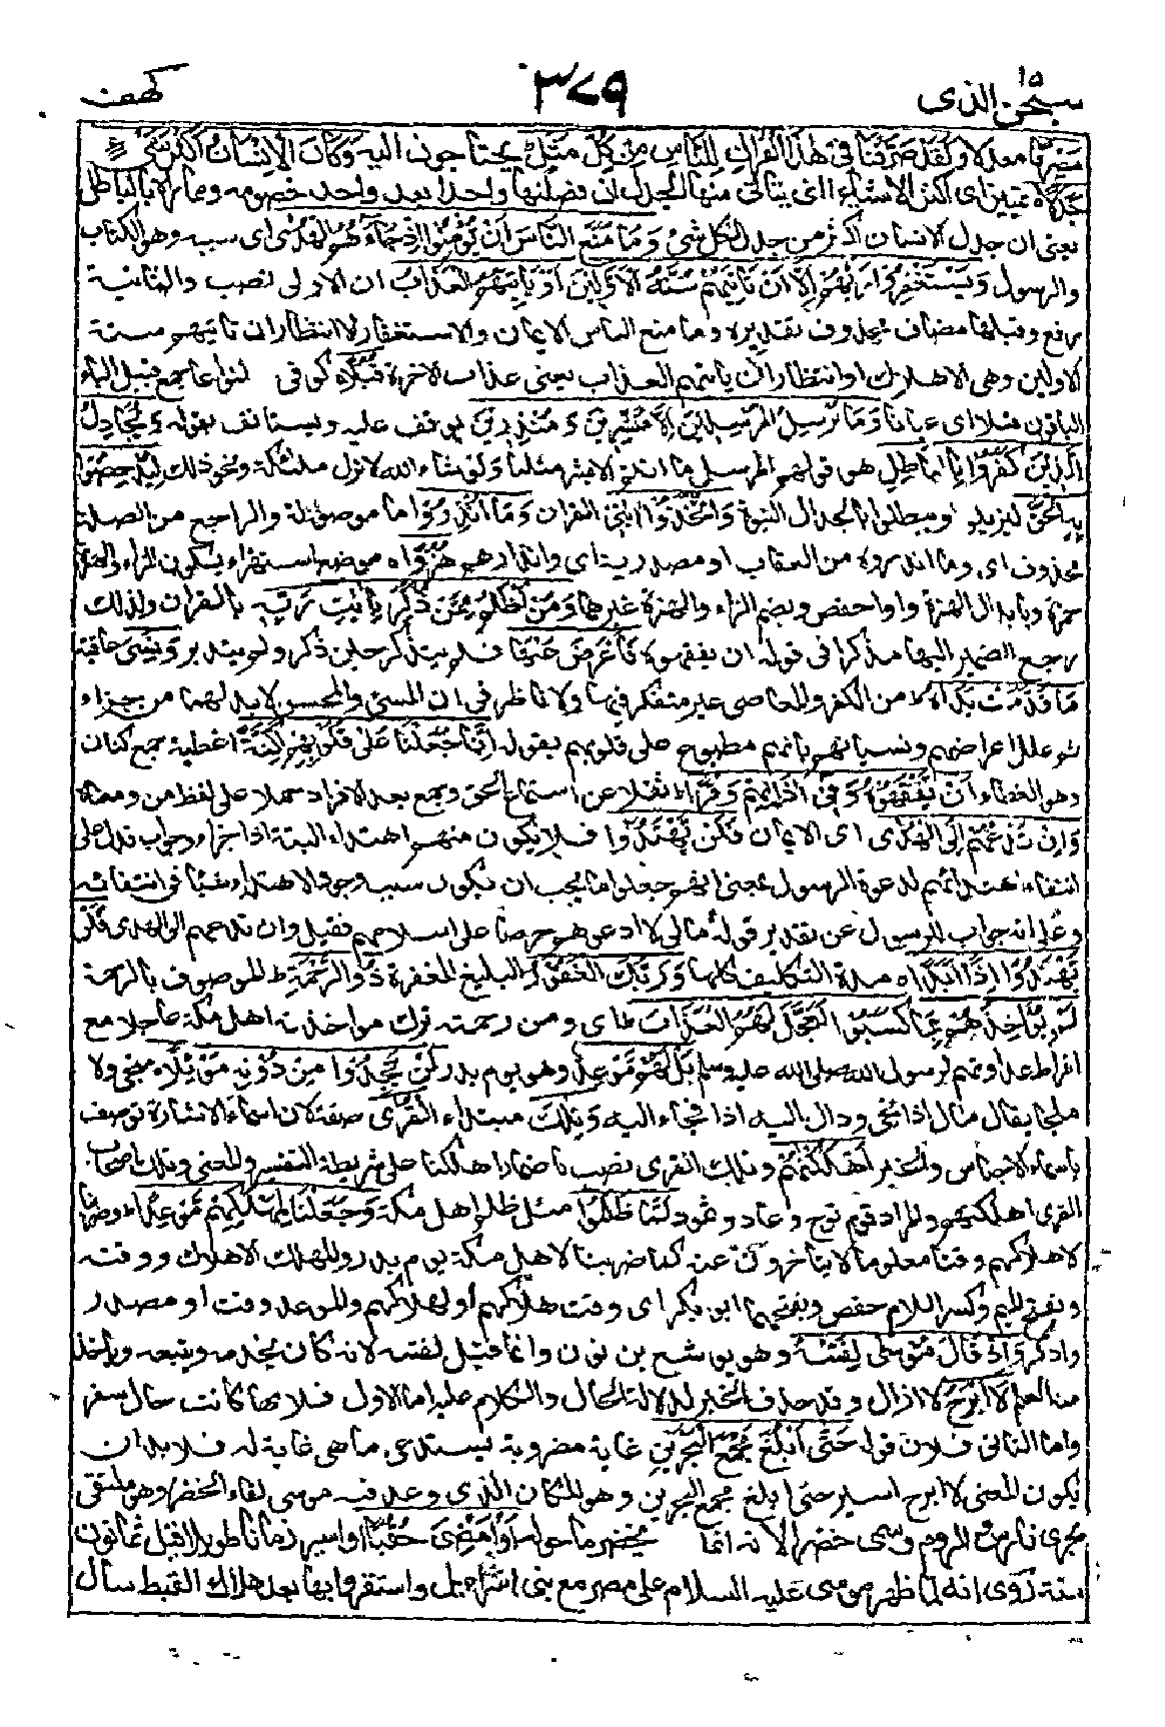 سبحن الذى ١٥
٣٧٩
كهف
مصرفا معدلا وَلَقَدْ صَرَّفْنَا فِى هٰذَا الْقُرْاٰنِ لِلنَّاسِ مِنْ كُلِّ مَثَلٍ يحتاجون اليه وَكَانَ الْاِنْسَانُ اَكْثَرَ شَىْءٍ
جَدَلًا تمييز اى اكثر الاشياء التى يتاتى منها الجدل ان فصلتها واحدا بعد واحد خصومه ومماراة بالباطل
يعنى ان جدل الانسان اكثر من جدل كل شئ وَمَا مَنَعَ النَّاسَ اَنْ يُؤْمِنُوْا اِذْ جَاءَهُمُ الْهُدٰى اى سببه وهو الكتاب
والرسول وَيَسْتَغْفِرُوْا رَبَّهُمْ اِلَّا اَنْ تَاْتِيَهُمْ سُنَّةُ الْاَوَّلِيْنَ اَوْ يَاْتِيَهُمُ الْعَذَابُ ان الاولى نصب والثانية
رفع وقبلها مضاف محذوف تقديره وما منع الناس الايمان والاستغفار الا انتظار ان تاتيهم سنة
الاولين وهى الاهلاك او انتظار ان ياتيهم العذاب يعنى عذاب الاخرة قُبُلًا كوفى انواعا جمع قبيل الباء
الباقون قبلا اى عيانا وَمَا نُرْسِلُ الْمُرْسَلِيْنَ اِلَّا مُبَشِّرِيْنَ وَمُنْذِرِيْنَ يوقف عليه ويستانف بقوله وَيُجَادِلُ
الَّذِيْنَ كَفَرُوْا بِالْبَاطِلِ هو قولهم للرسل ما انتم الا بشر مثلنا ولو شاء الله لانزل ملئكة ونحو ذلك لِيُدْحِضُوْا
بِهِ الْحَقَّ ليزيلوا ويبطلوا بالجدال النبوة وَاتَّخَذُوْا اٰيٰتِىْ القران وَمَا اُنْذِرُوْا ما موصولة والراجع من الصلة
محذوف اى وما انذروه من العقاب او مصدرية اى وانذارهم هُزُوًا موضع استهزاء بسكون الزاء والهمزة
حمزة وبابدال الهمزة واوا حفص وبضم الزاء والهمزة غيرهما وَمَنْ اَظْلَمُ مِمَّنْ ذُكِّرَ بِاٰيٰتِ رَبِّهٖ بالقران ولذلك
رجع الضمير اليها مذكرا فى قوله ان يفقهوه فَاَعْرَضَ عَنْهَا فلم يتذكر حين ذكر ولم يتدبر وَنَسِىَ عاقبة
مَا قَدَّمَتْ يَدَاهُ من الكفر والمعاصى غير متفكر فيها ولا ناظر فى ان المسئ والمحسن لا بد لهما من جزاء
ثم علل اعراضهم ونسيانهم بانهم مطبوع على قلوبهم بقوله اِنَّا جَعَلْنَا عَلٰى قُلُوْبِهِمْ اَكِنَّةً اغطية جمع كنان
وهو الغطاء اَنْ يَفْقَهُوْهُ وَفِىْ اٰذَانِهِمْ وَقْرًا ثقلا عن استماع الحق وجمع بعد الافراد حملا على لفظ من ومعناه
وَاِنْ تَدْعُهُمْ اِلَى الْهُدٰى اى الايمان فَلَنْ يَهْتَدُوْا فلا يكون منهم اهتداء البتة اذا جزاء وجواب فدل على
انتفاء اهتدائهم لدعوة الرسول بمعنى انهم جعلوا ما يجب ان يكون سبب وجود الاهتداء سببا فى انتفائه
وعلى انه جواب للرسول عن تقدير قوله مالى لا ادعوهم حرصا على اسلامهم فقيل وان تدعهم الى الهدى فَلَنْ
يَهْتَدُوْا اِذًا اَبَدًا مدة التكليف كلها وَرَبُّكَ الْغَفُوْرُ البليغ المغفرة ذُو الرَّحْمَةِ الموصوف بالرحمة
لَوْ يُؤَاخِذُهُمْ بِمَا كَسَبُوْا لَعَجَّلَ لَهُمُ الْعَذَابَ اى ومن رحمته ترك مواخذته اهل مكة عاجلا مع
افراط عداوتهم لرسول الله صلى الله عليه وسلم بَلْ لَهُمْ مَوْعِدٌ وهو يوم بدر لَنْ يَجِدُوْا مِنْ دُوْنِهٖ مَوْئِلًا منجى ولا
ملجا يقال وال اذا نجى ووال اليه اذا لجاء اليه وَتِلْكَ مبتداء الْقُرٰى صفة لان اسماء الاشارة توصف
باسماء الاجناس والخبر اَهْلَكْنٰهُمْ وتلك القرى نصب باضمار اهلكنا على شريطة التفسير والمعنى وتلك اصحاب
القرى اهلكنهم والمراد قوم نوح وعاد وثمود لَمَّا ظَلَمُوْا مثل ظلم اهل مكة وَجَعَلْنَا لِمَهْلِكِهِمْ مَوْعِدًا وضربنا
لاهلاكهم وقتا معلوما لا يتاخرون عنه كما ضربنا لاهل مكة يوم بدر والمهلك الاهلاك ووقته
وبفتح الميم وكسر اللام حفص وبفتحهما ابو بكر اى وقت هلاكهم او لهلاكهم والموعد وقت او مصدر
واذكر وَاِذْ قَالَ مُوْسٰى لِفَتٰىهُ وهو يوشع بن نون وانما قيل لفتيه لانه كان يخدمه ويتبعه وياخذ
منه العلم لَا اَبْرَحُ لا ازال وقد حذف الخبر لدلالة الحال والكلام عليه اما الاول فلانها كانت حال سفر
واما الثانى فلان قوله حَتّٰى اَبْلُغَ مَجْمَعَ الْبَحْرَيْنِ غاية مضروبة تستدعى ما هى غاية له فلا بد ان
يكون المعنى لا ابرح اسير حتى ابلغ مجمع البحرين وهو المكان الذى وعد فيه موسى لقاء الخضر وهو ملتقى
بحرى فارس والروم وسمى خضرا لانه اينما يخضر ما حوله اَوْ اَمْضِىَ حُقُبًا او اسير زمانا طويلا قيل ثمانون
سنة روى انه لما ظهر موسى عليه السلام على مصر مع بنى اسرائيل واستقروا بها بعد هلاك القبط سال